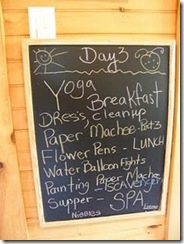 Day 3
Yoga
Breakfast
Dress, cleanup
Paper Machee - Part 3
Flower Pens - LUNCH
Water Balloon Fights
Painting Paper Mache
Scavenger
Supper - SPA